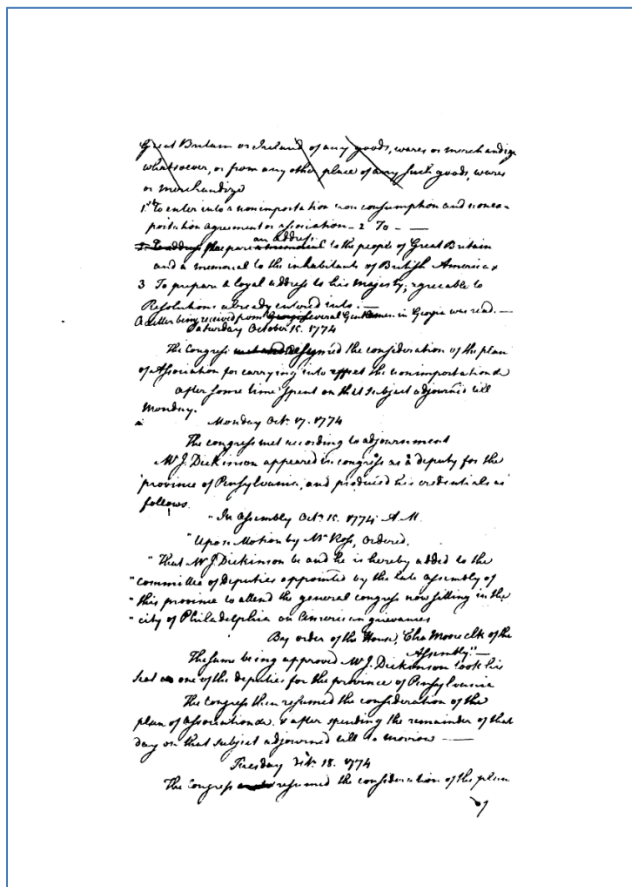 Great Britain or Ireland of any goods, wares or merchandize
whatsoever, or from any other place of any such goods, wares
or merchandize
1st To enter into a nonimportation non consumption and nonex-
portation agreement or association - 2 To - —
prepare an address to the people of Great Britain
and a memorial to the inhabitants of British America
3 To prepare a loyal address to his majesty; agreeable to
Resolutions already entered into. —
A letter being received from several Gentlemen in Georgia was read. —
Saturday October 15. 1774
The Congress resumed the consideration of the plan
of Association for carrying into effect the nonimportation &
after some time spent on that subject adjourned till
Monday.
Monday Octr. 17. 1774
The congress met according to adjournment
Mr J. Dickinson appeared in congress as a deputy for the
province of Pensylvania, and produced his credentials as
follows.
"In Assembly Octr. 15. 1774 A.M.
"Upon Motion by Mr Ross, Ordered,
"That Mr J Dickinson be and he is hereby added to the
"committee of deputies appointed by the late assembly of
"this province to attend the general congress now sitting in the
"city of Philadelphia on American grievances
By order of the House, Chas Moore clk of the
Assembly" —
The same being approved Mr J. Dickinson took his
seat as one of the deputies for the province of Pensylvania
The Congress then resumed the consideration of the
plan of Association &. & after spending the remainder of that
day on that subject adjourned till to morrow —
Tuesday Octr. 18. 1774
The Congress resumed the consideration of the plan
of